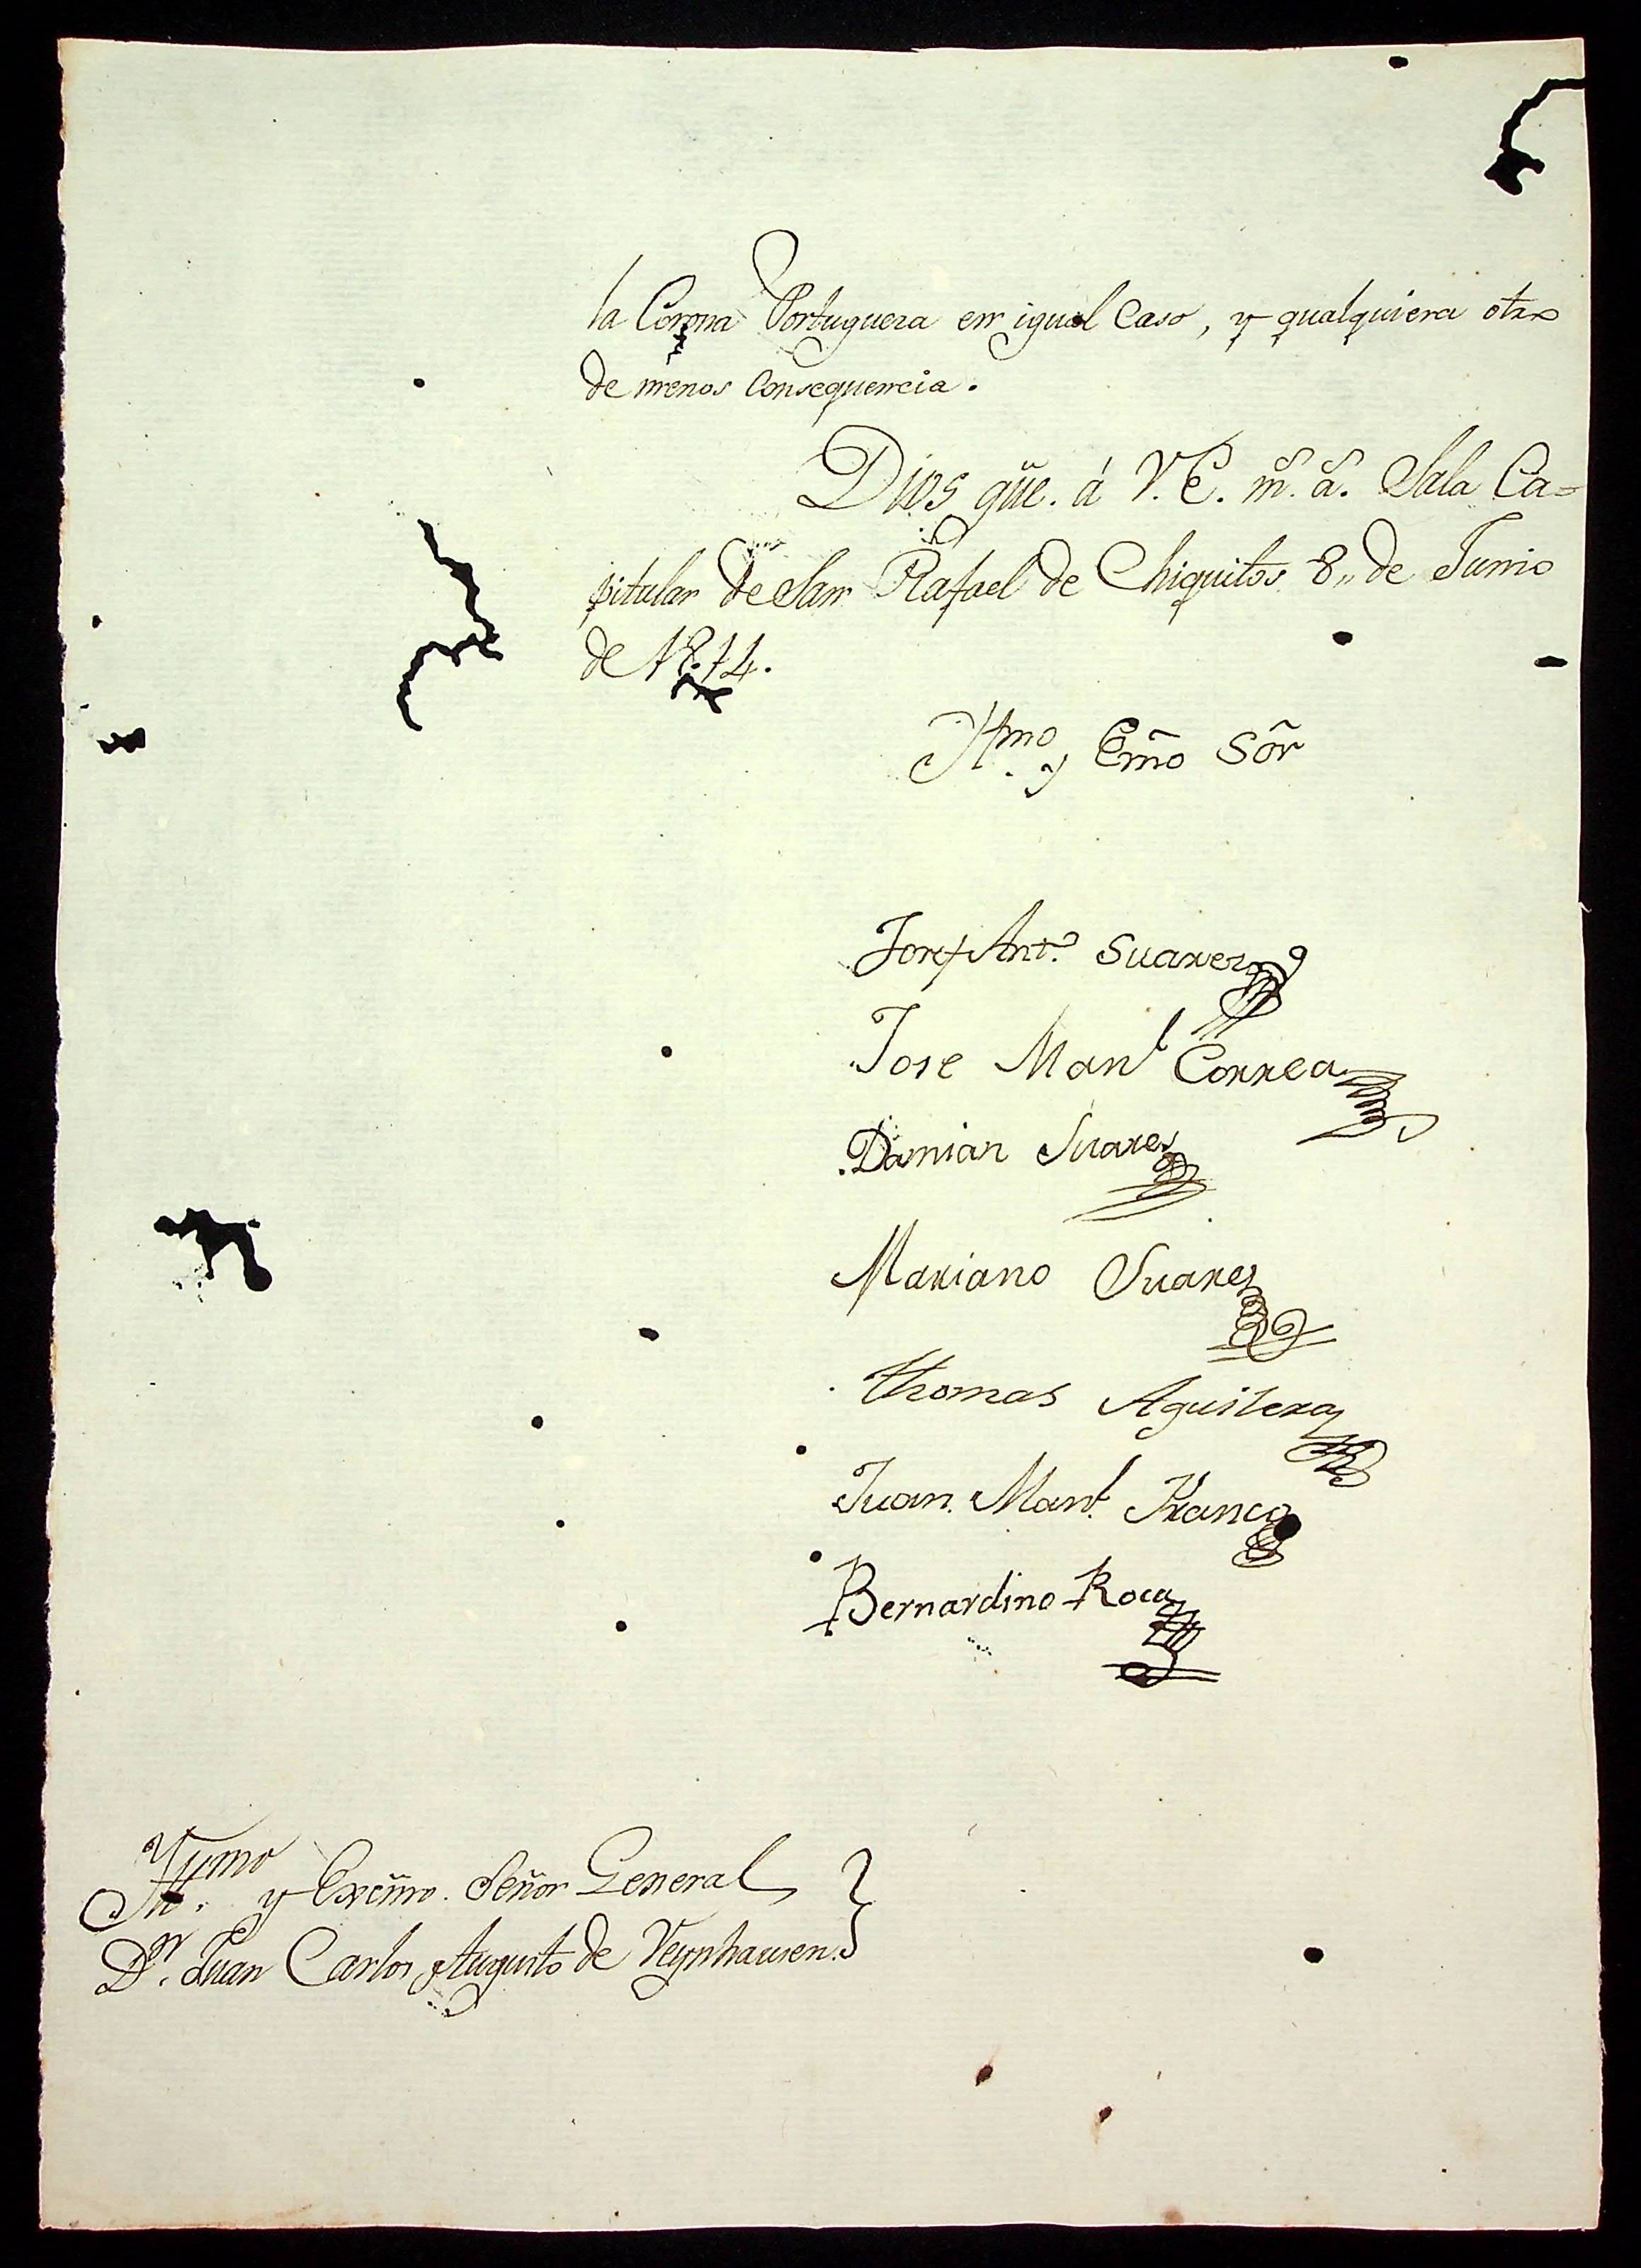 la Corona Portugueza en igual Caso, y qualquiera otro
de menos Consequencia.
Dios gũe. á V. E. m.s a.s Sala Ca=
pitular de San Rafael de Chiquitos 8,, de Junio
de 18.14.
Yll.mo y Em̃o Sõr
Josef Ant.o Suarez
Jose Man.l Correa
Damian Suares
Mariano Suares
Thomas Aguilera
Juan Man.l Franco
Bernardino Roca
Yll.mo y Excm̃o. Señor General
D.n Juan Carlos Augusto de Oeynhausen.